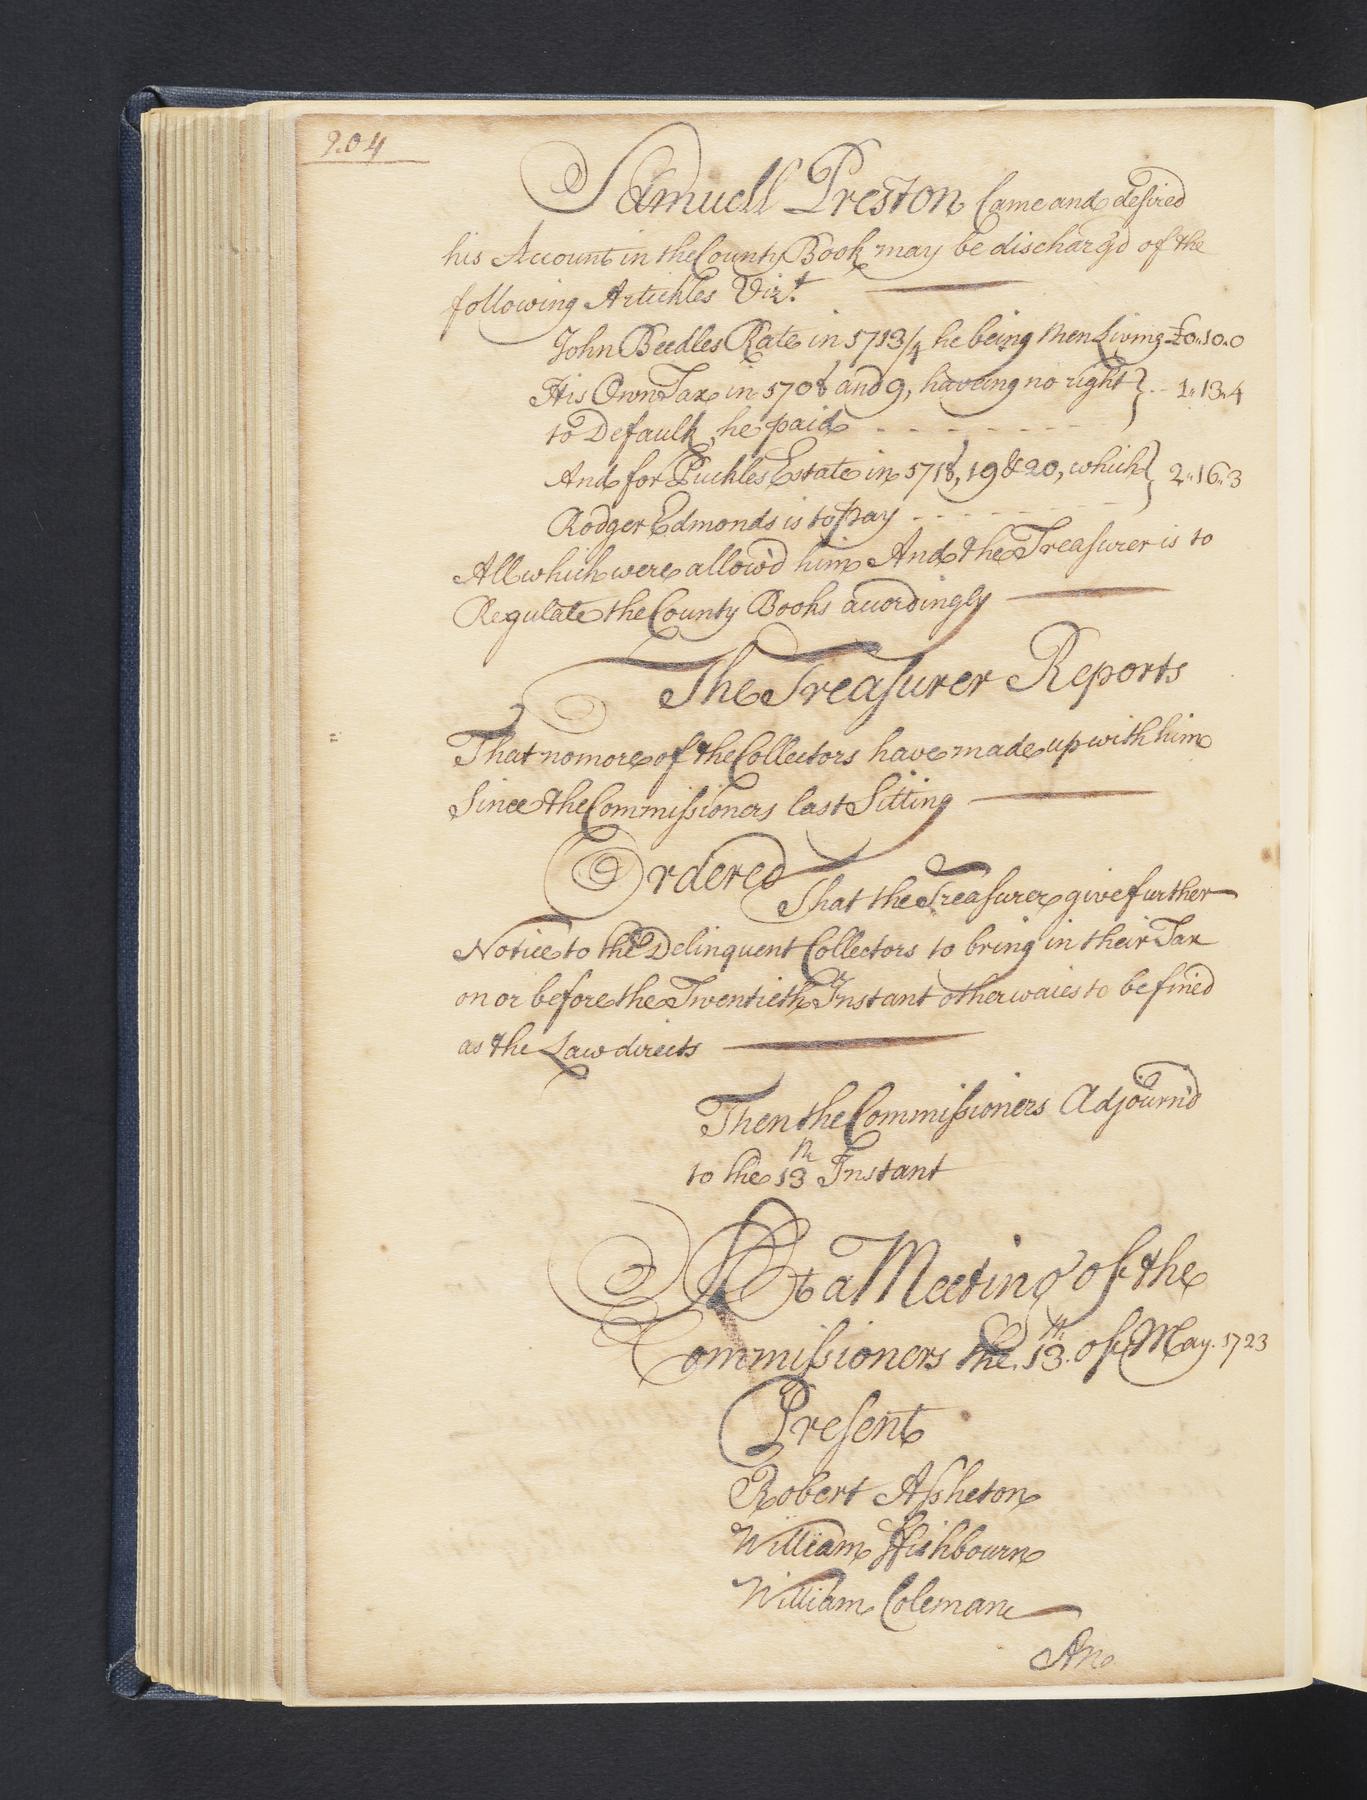 204
Samuell Preston Came and desired
his Account in the County Book may be discharg'd of the
following Artickles Vizt
John Beedles Rate in 1713/4 he being then Living £0..10..0
His Own Tax in 1708 and 9, haveing no right } .. 1..13..4
to Defaulk he paid
And for Puckles Estate in 1718, 19 & 20, which } 2..16..3
Rodger Edmonds is to pay
All which were allow'd him And the Treasurer is to
Regulate the County Books acordingly
The Treasurer Reports
That no more of the Collectors have made up with him
Since the Commissioners last Sitting
Ordered That the Treasurer give further
Notice to the Delinquent Collectors to bring in their Tax
on or before the Twentieth Instant otherwaies to be fined
as the Law directs
Then the Commissioners Adjourn'd
to the 13th Instant
At a Meeting of the
Commissioners the 13th of May. 1723
Present
Robert Assheton
William Fishbourn
William Coleman
An